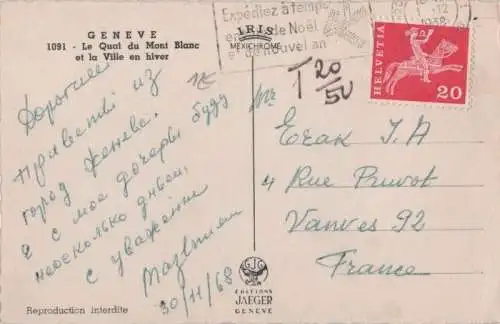 GENEVE
1091 - Le Quai du Mont Blanc
et la Ville en hiver
IRIS
MEXICHROME
Expédiez à temps
de Noël
et de nouvel an
1.12
HELVETIA
20
T 20/50
1E
Дорогие
Приветы из
город Женева.
Я с мое дочеры буду
несколько дньей,
с уважение
30/11/68
Mr
Erak I.A
4 Rue Pruvot
Vanves 92
France
EDITIONS
JAEGER
GENEVE
Reproduction interdite